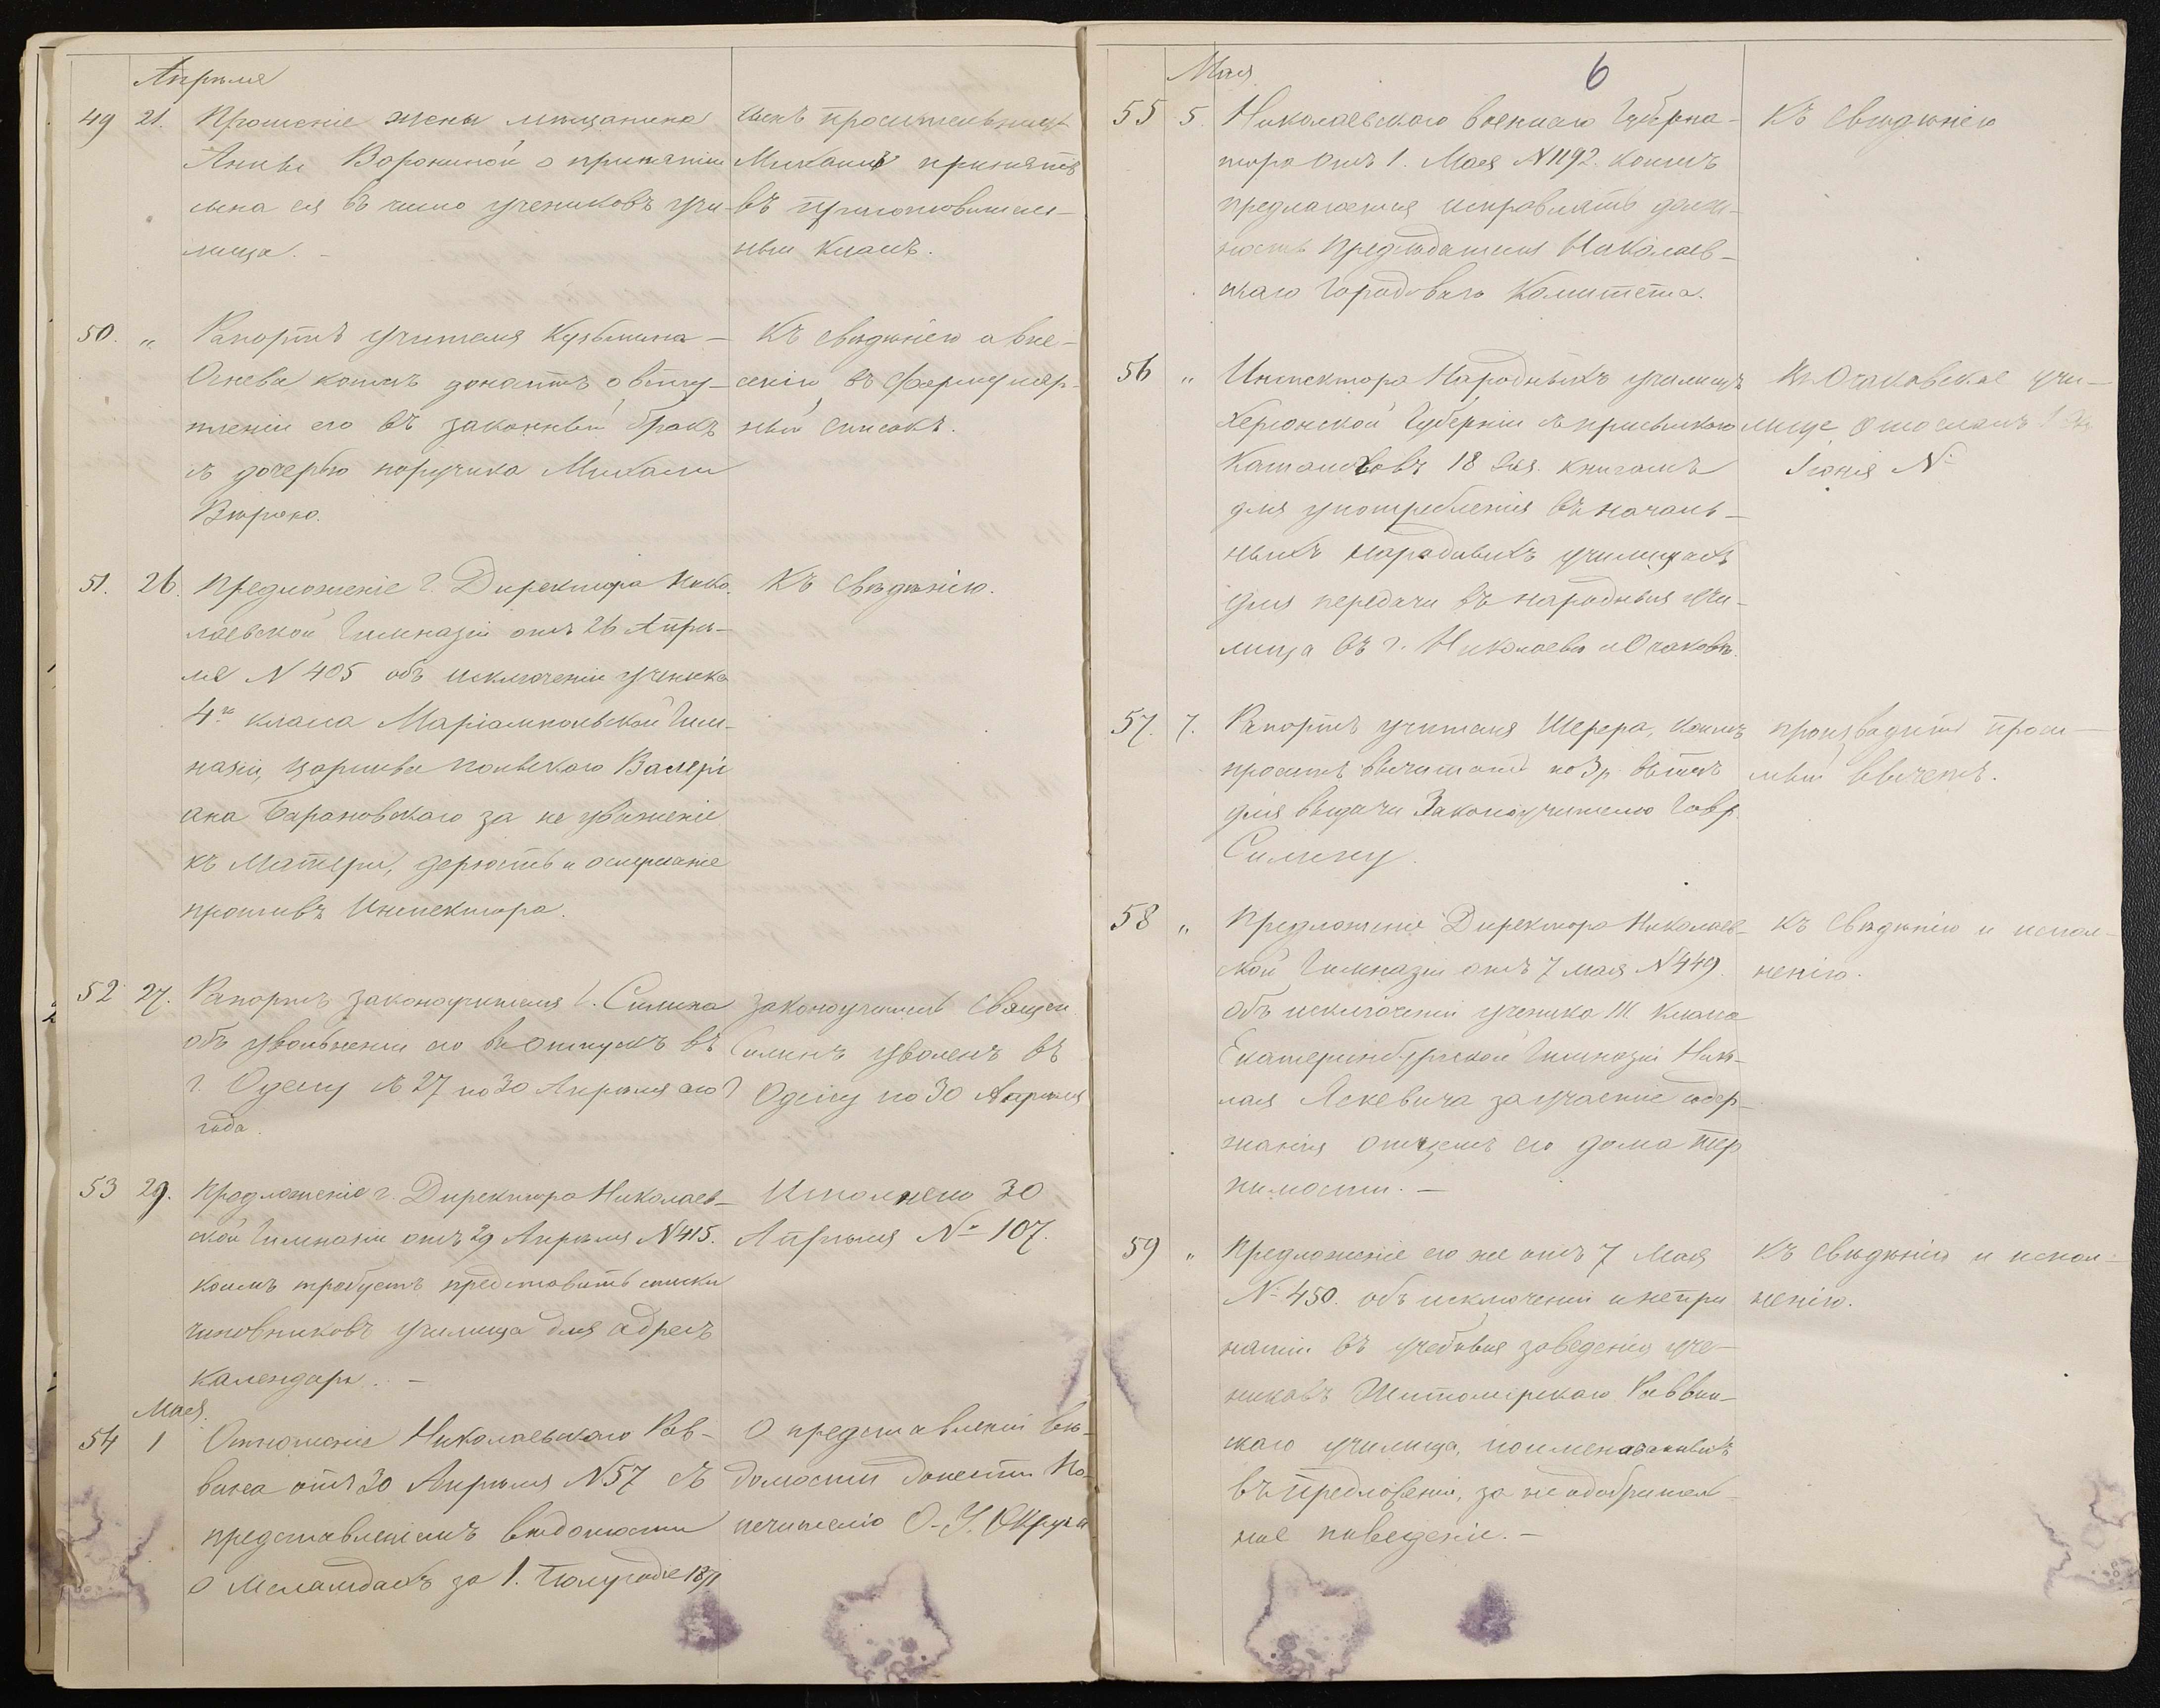 Апрѣля
49 21. Прошеніе жены мѣщанина
Анны Ворониной о принятіи
сына ея въ число учениковъ учи-
лища. -
сынъ просительницы
Михаилъ принятъ
въ приготовитель-
ный классъ.
50. „ Рапортъ учителя Кузьмина-
Огнева коимъ доноситъ о всту-
пленіи его въ законный бракъ
съ дочерью поручика
Къ свѣдѣнію и вне-
сенію въ формуляр-
ный списокъ.
51. 26. Предложеніе г. Директора Нико-
лаевской Гимназіи отъ 26 Апрѣ-
ля N 405 объ исключеніи ученика
4го класса Маріампольской Гим-
назіи, царства польскаго Валері
ана Барановскаго за не уваженіе
къ Матери, дерзость и ослушаніе
противъ Инспектора.
Къ Свѣдѣнію.
52 27. Рапортъ законоучителя Г. Силина
объ увольненіи его въ отпускъ въ
г. Одессу съ 27 по 30 Апрѣля сего
года.
законоучитель Священ
Силинъ уволенъ въ
г Одессу по 30 Апрѣля
53 29. Предложеніе г. Директора Николаев-
ской Гимназіи отъ 29 Апрѣля N 415.
коимъ требуетъ представить списки
чиновниковъ училища для адресъ
календаря. -
Исполнено 30
Апрѣля № 107.
Мая.
54 1 Отношеніе Николаевскаго Рав-
вина отъ 30 Апрѣля N 57 съ
представленіемъ вѣдомости
о Меламдахъ за 1. полугодіе 1871
О представленіи вѣ-
домости донести По-
печителю О. У. Округа
6
Мая
55 5. Николаевскаго военнаго Губерна-
тора отъ 1. Мая N 1192. коимъ
предлагается исправлять долж-
ность Предсѣдателя Николаев-
скаго Городоваго Комитета.
Къ свѣдѣнію
56 „ Инспектора Народныхъ училищъ
Херсонской Губерніи съ присылкою
Каталоговъ 18 экз. книгамъ
для употребленія въ началь-
ныхъ народныхъ училищахъ
для передачи въ народныя учи-
лища въ г. Николаевѣ и Очаковѣ.
Въ Очаковское учи-
лище отосланъ
Іюня №
57. 7. Рапортъ учителя Шерера, коимъ
проситъ вычитать по 3 р.
для выдачи Законоучителю Гавр
Силину.
производить проси-
мый вычетъ.
58 „ Предложеніе Директора Николаев-
ской Гимназіи отъ 7 мая N 449.
объ исключеніи ученика III класса
Екатеринбургской Гимназіи Нико-
лая Яскевича за участіе содер-
жанія отцемъ его дома тер
пимости. -
Къ Свѣдѣнію и испол-
ненію.
59 „ Предложеніе его же отъ 7 Мая
№ 450. объ исключеніи и непри
нятіи въ учебныя заведенія уче-
никовъ Житомирскаго Раввин-
скаго училища, поименованныхъ
въ предложеніи, за неодобритель-
ное поведеніе. -
Къ Свѣдѣнію и испол-
ненію.